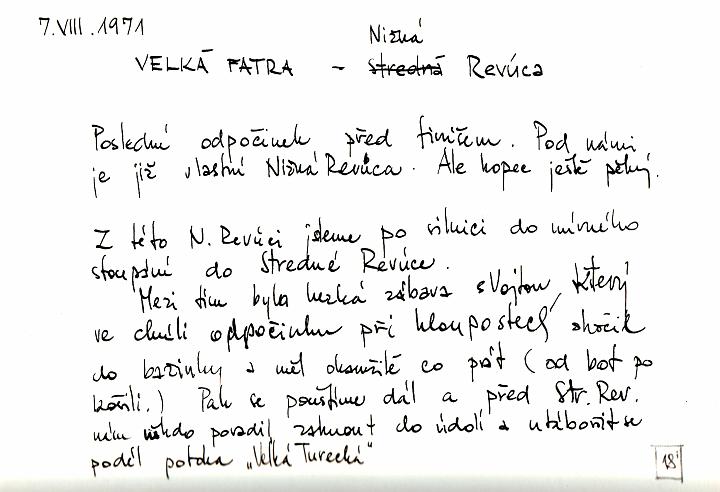 7.VIII.1971
Nižná
VELKÁ FATRA - Stredná Revúca
Poslední odpočinek před finišem. Pod námi
je již vlastní Nižná Revúca. Ale kopec ještě pěkný.
Z této N. Revúci jdeme po silnici do mírného
stoupání do Stredné Revúce.
Mezi tím byla hezká zábava s Vojtou, který
ve chvíli odpočinku při hloupostech skočil
do bažinky a měl okamžitě co prát (od bot po
košili.) Pak se pouštíme dál a před Str. Rev.
nám někdo poradil zahnout do údolí a utábořit se
podél potoka „Velká Turecká"
18